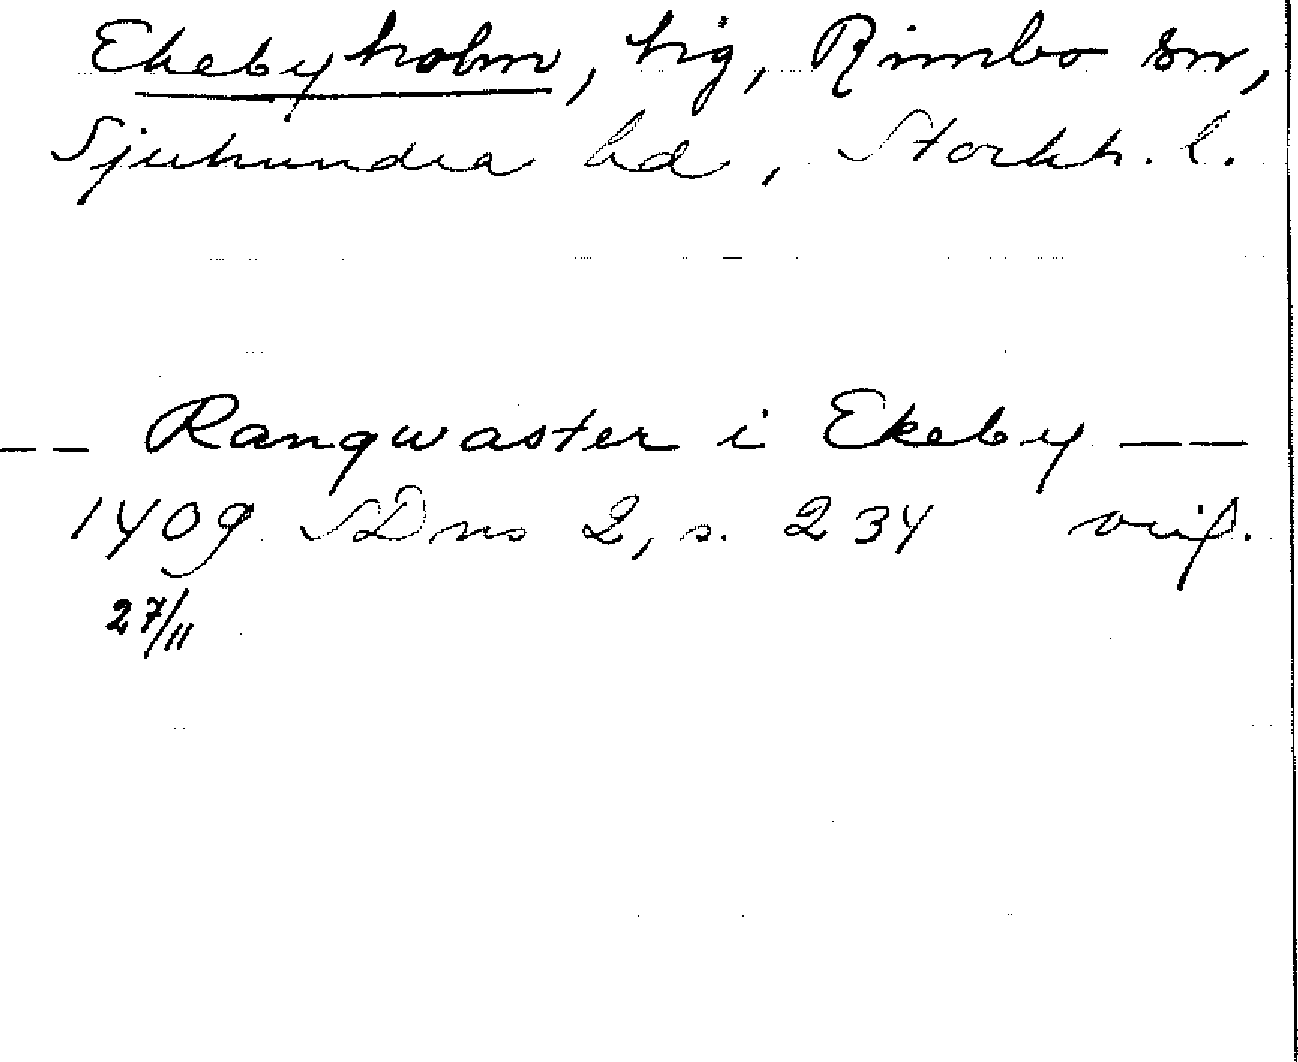 Ekebyholm, hg, Rimbo sn,
Sjuhundra hd, Stockh. l.
-- Rangwaster i Ekeby --
1409 SDns 2, s. 234
27/11